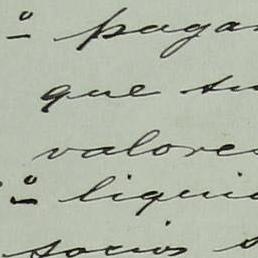 º pagar
que su
valores
º liquid
socios s